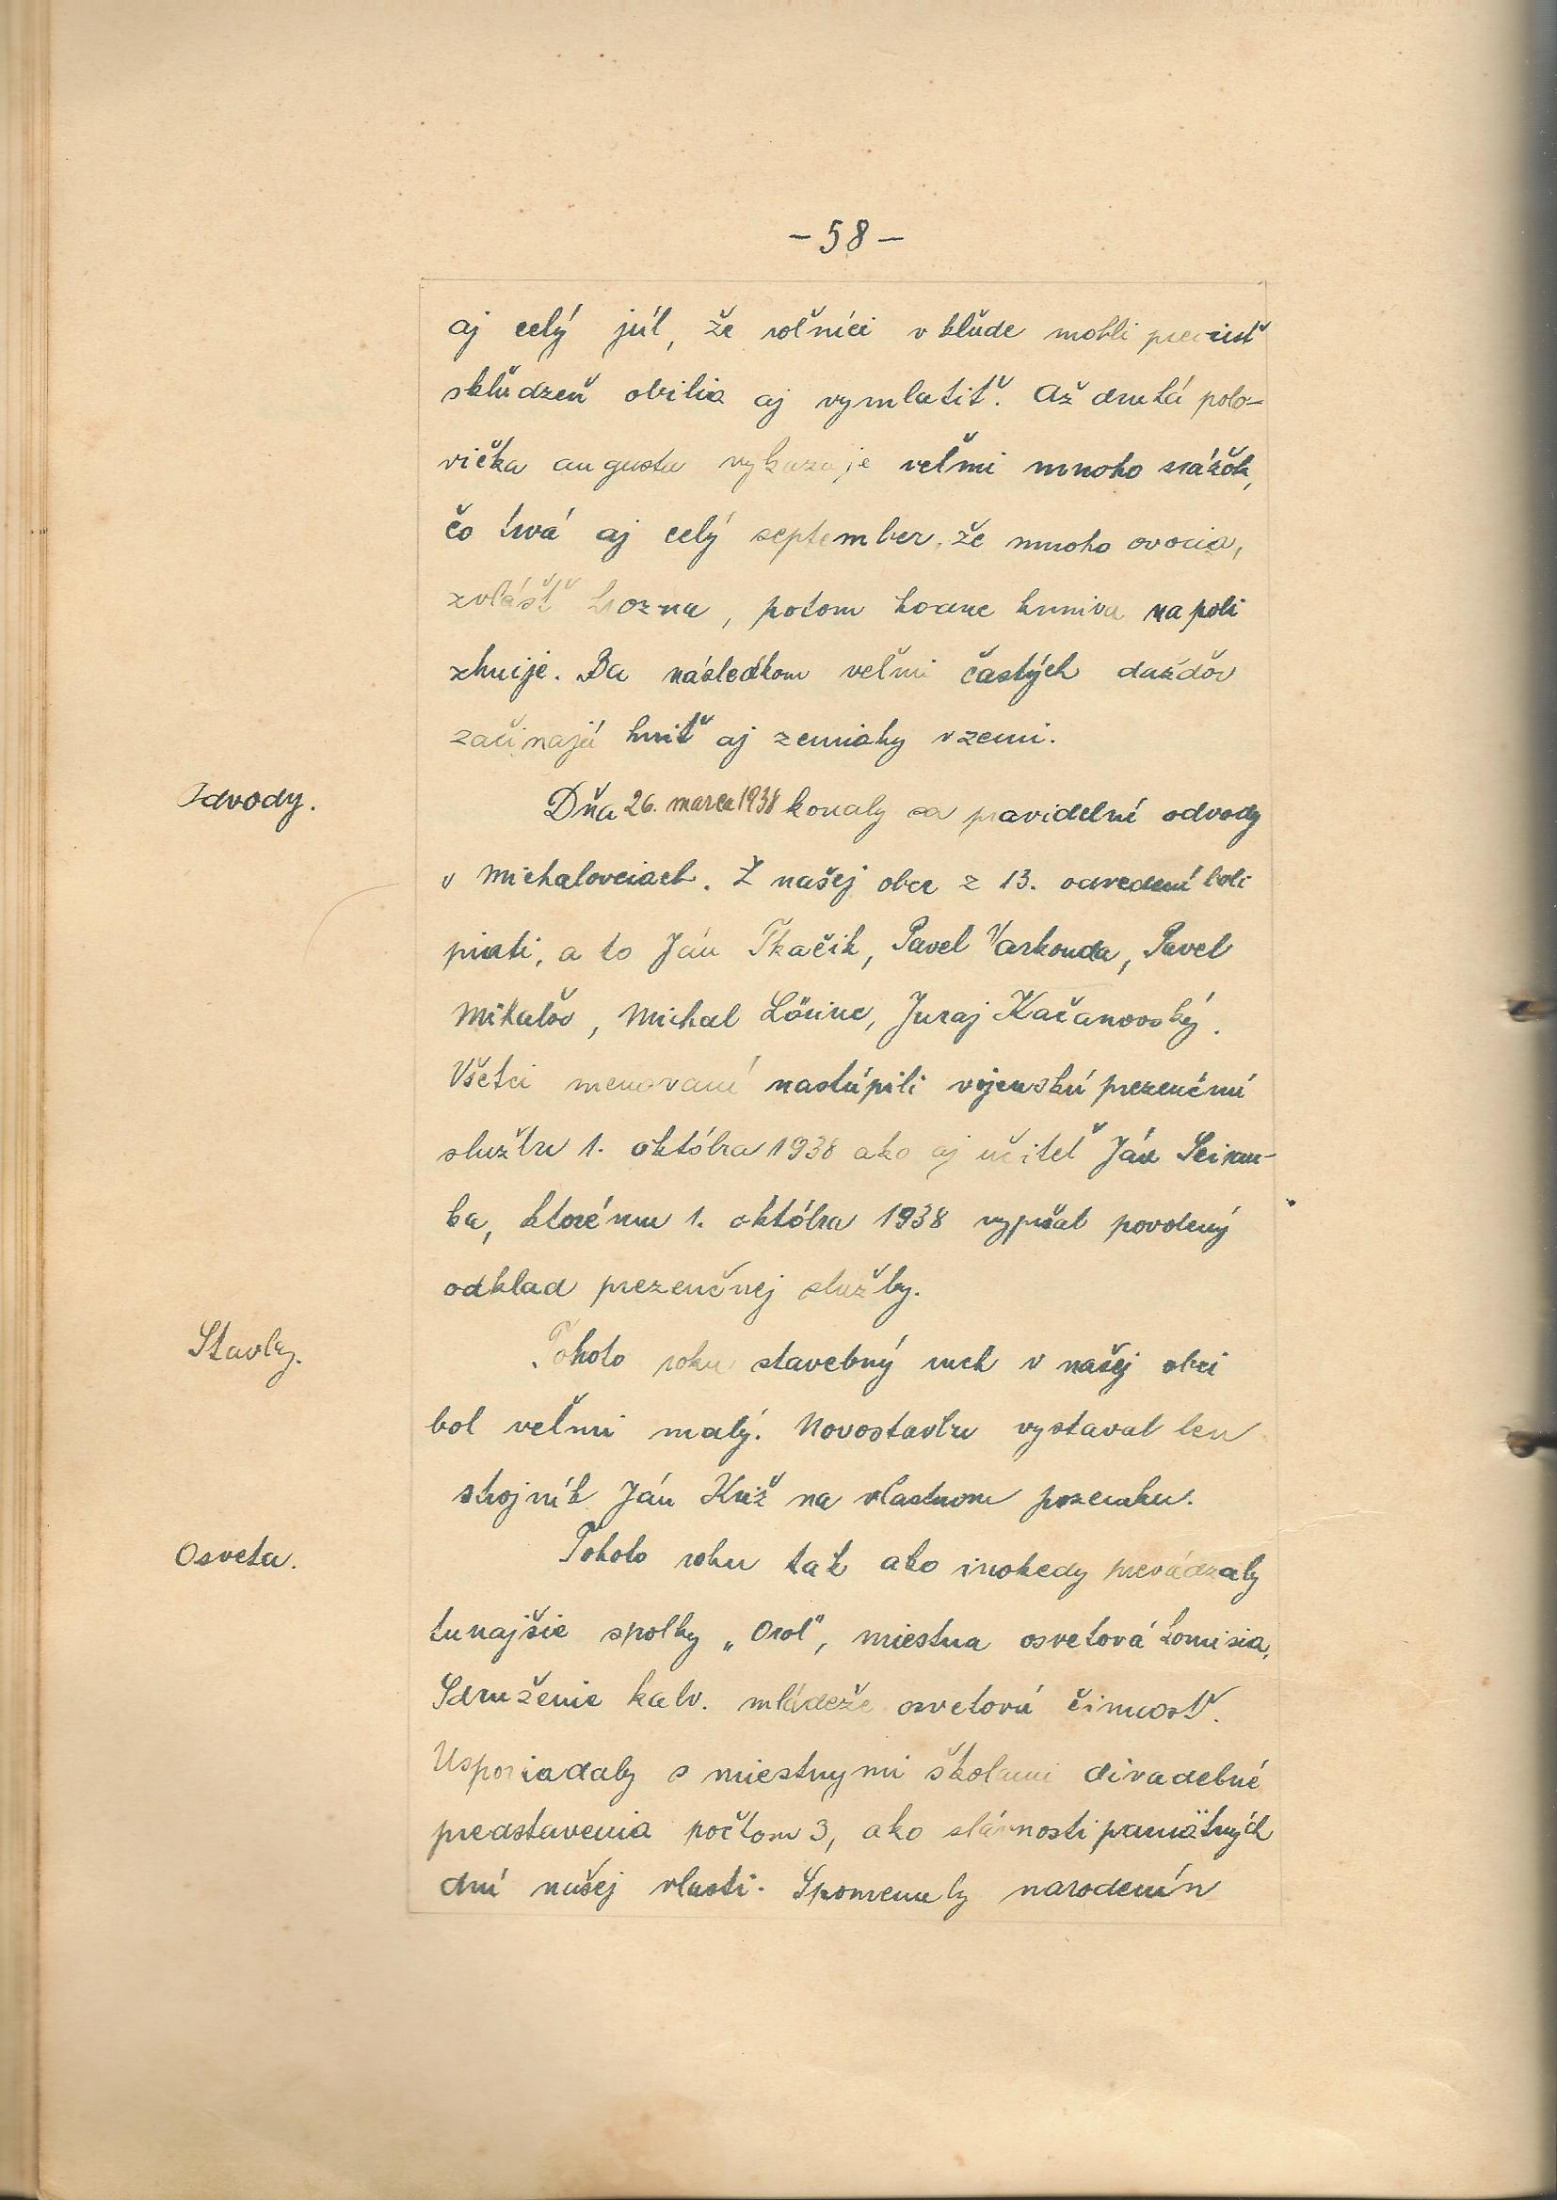 - 58 -
aj celý júl, že roľníci v kľude mohli previesť
skľudzeň obilia aj vymlatiť. Až druhá polo-
vička augusta vykazuje veľmi mnoho srážok,
čo trvá aj celý september, že mnoho ovocia,
zvlášť hrozna, potom krmiva na poli
zhnije. Ba následkom veľmi častých dažďov
začínajú hniť aj zemiaky v zemi.
Odvody.
Dňa 26. marca 1938 konaly sa pravidelné odvody
v Michalovciach. Z našej obce z 13. odvedení boli
piati, a to Ján Tkačik, Pavel Varkonda, Pavel
Mikulov, Michal Lörinc, Juraj Kačanovský.
Všetci menovaní nastúpili vojenskú prezenčnú
službu 1. októbra 1938 ako aj učiteľ Ján
ba, ktorému 1. októbra 1938 vypršal povolený
odklad prezenčnej služby.
Stavby.
Tohoto roku stavebný ruch v našej obci
bol veľmi malý. Novostavbu vystaval len
strojník Ján Kríž na vlastnom pozemku.
Osveta.
Tohoto roku tak ako inokedy prevádzaly
tunajšie spolky „Orol", miestna osvetová komisia,
Sdruženie kalv. mládeže osvetovú činnosť.
Usporiadaly s miestnymi školami divadelné
predstavenia počtom 3, ako slávnosti pamätných
dní našej vlasti. Spomenuly narodenín